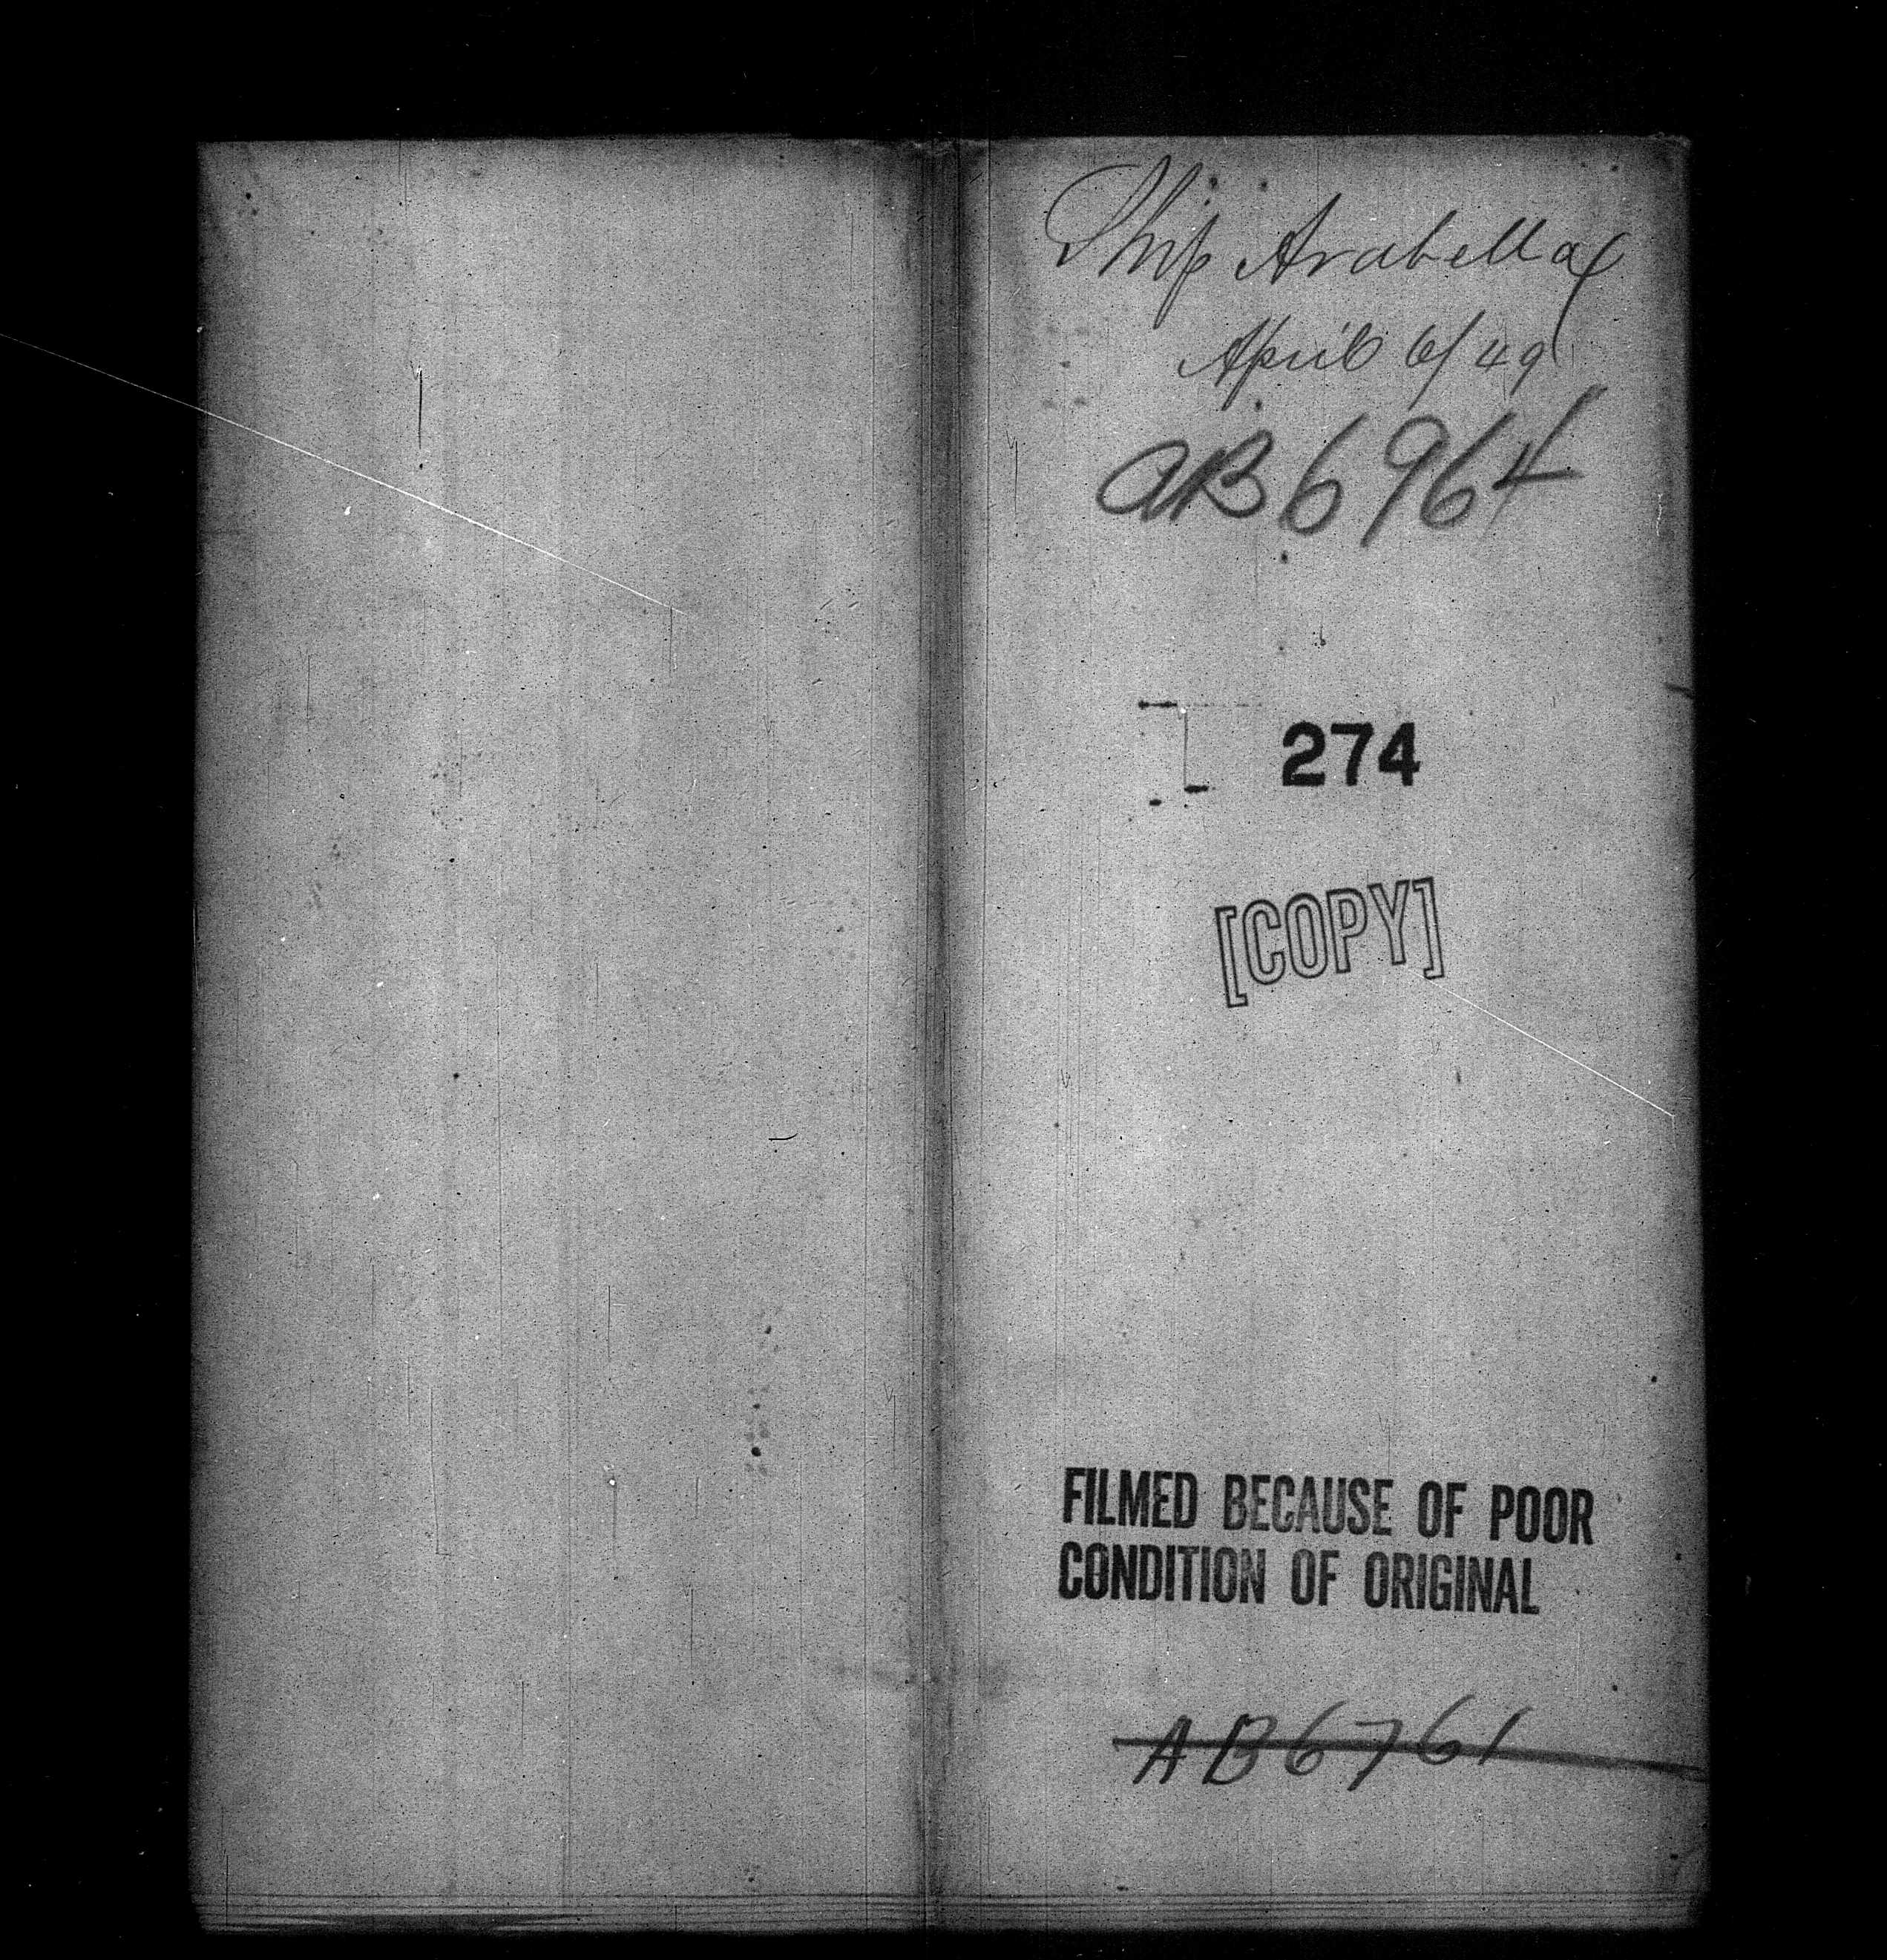 Ship Arabella
April 6/49
AB6964
274
[COPY]
FILMED BECAUSE OF POOR
CONDITION OF ORIGINAL
AB6761